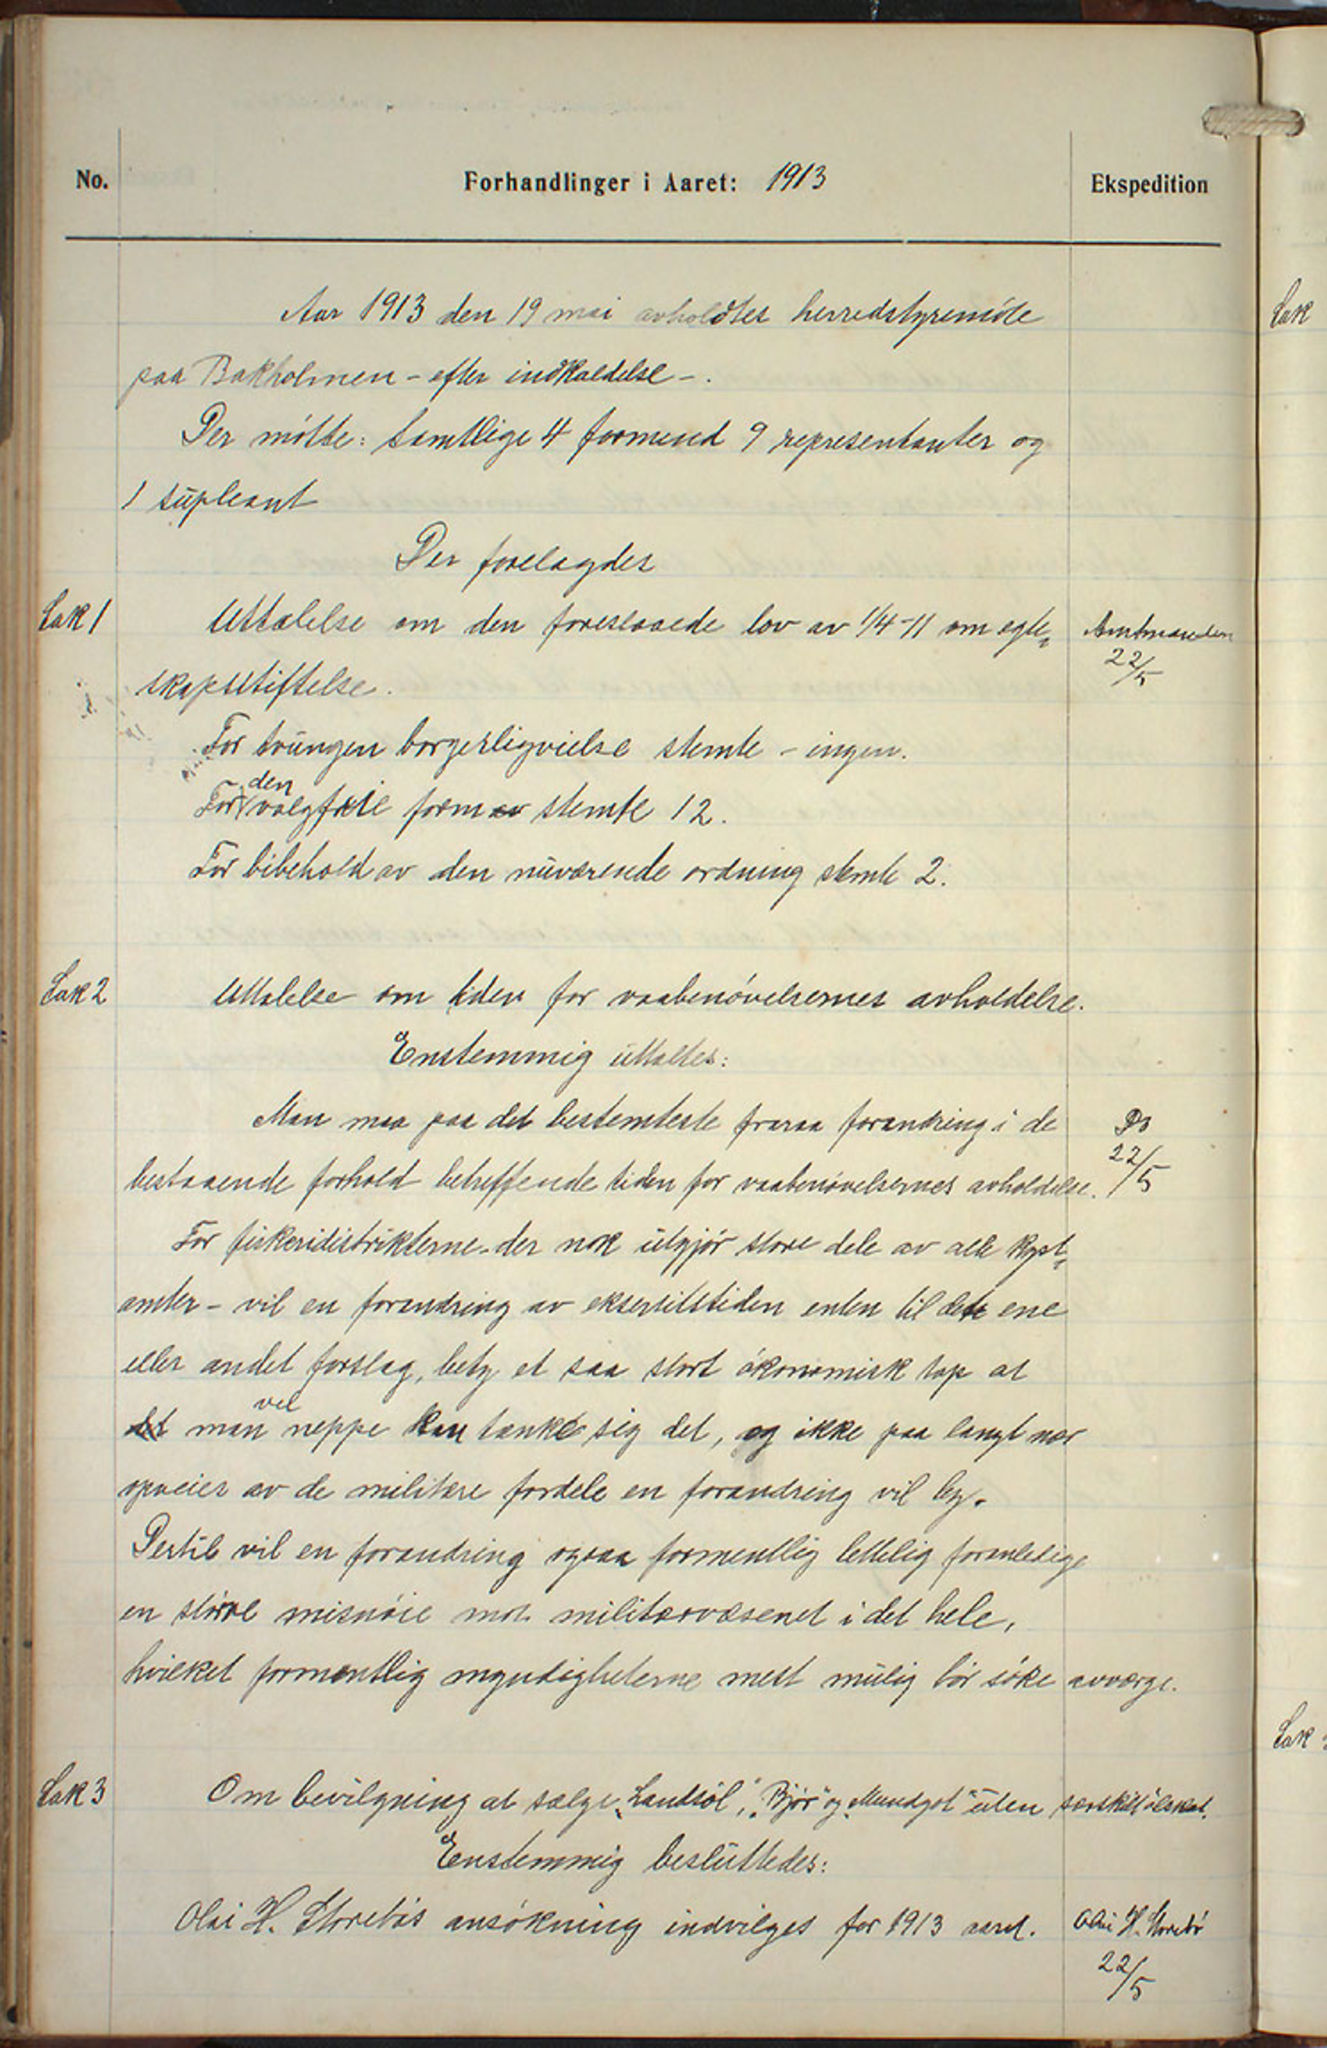 No. Forhandlinger i Aaret: 1913 Ekspedition
Aar 1913 den 19 mai avholdtes herredstyremöte
paa Bakholmen - efter indkaldelse -.
Der mötte: Samtlige 4 formænd 9 representanter og
1 supleant
Der forelagdes
Sak 1 Uttalelse om den foreslaaede lov av 1/4-11 om egte„ Amtmanden
skapsstiftelse. 22/5
For tvungen borgerligvielse stemte - ingen.
den
For valgfrie form av stemte 12.
For bibehold av den nuværende ordning stemte 2.
Sak 2 Uttalelse om tiden for vaabenövelsernes avholdelse.
Enstemmig uttaltes:
Man maa paa det bestemteste fraraa forandring i de Do
bestaaende forhold betreffende tiden for vaabenövelsernes avholdelse. 22/5
For fiskeridistrikterne - der nok utgjör store dele av alle kyst„
amter - vil en forandring av eksersitstiden enten til det ene
eller andet forslag, bety et saa stort ökonomisk tap at
vel
det man neppe kan tænke sig det, og ikke paa langt nær
opveier av de militære fordele en forandring vil by.
Dertil vil en forandring ogsaa formentlig lettelig foranledige
en större misnöie mot militærvæsenet i det hele,
hvilket formentlig myndigheterne mest mulig bör söke avværge.
Sak 3 Om bevilgning at sælge „Landsöl", „Bjór" og „Mundgot" uten særskilt ölskat.
Enstemmig besluttedes:
Olai H. Storebös ansökning indvilges for 1913 aaret. Olai H. Storebö
22/5
Sak
Sak